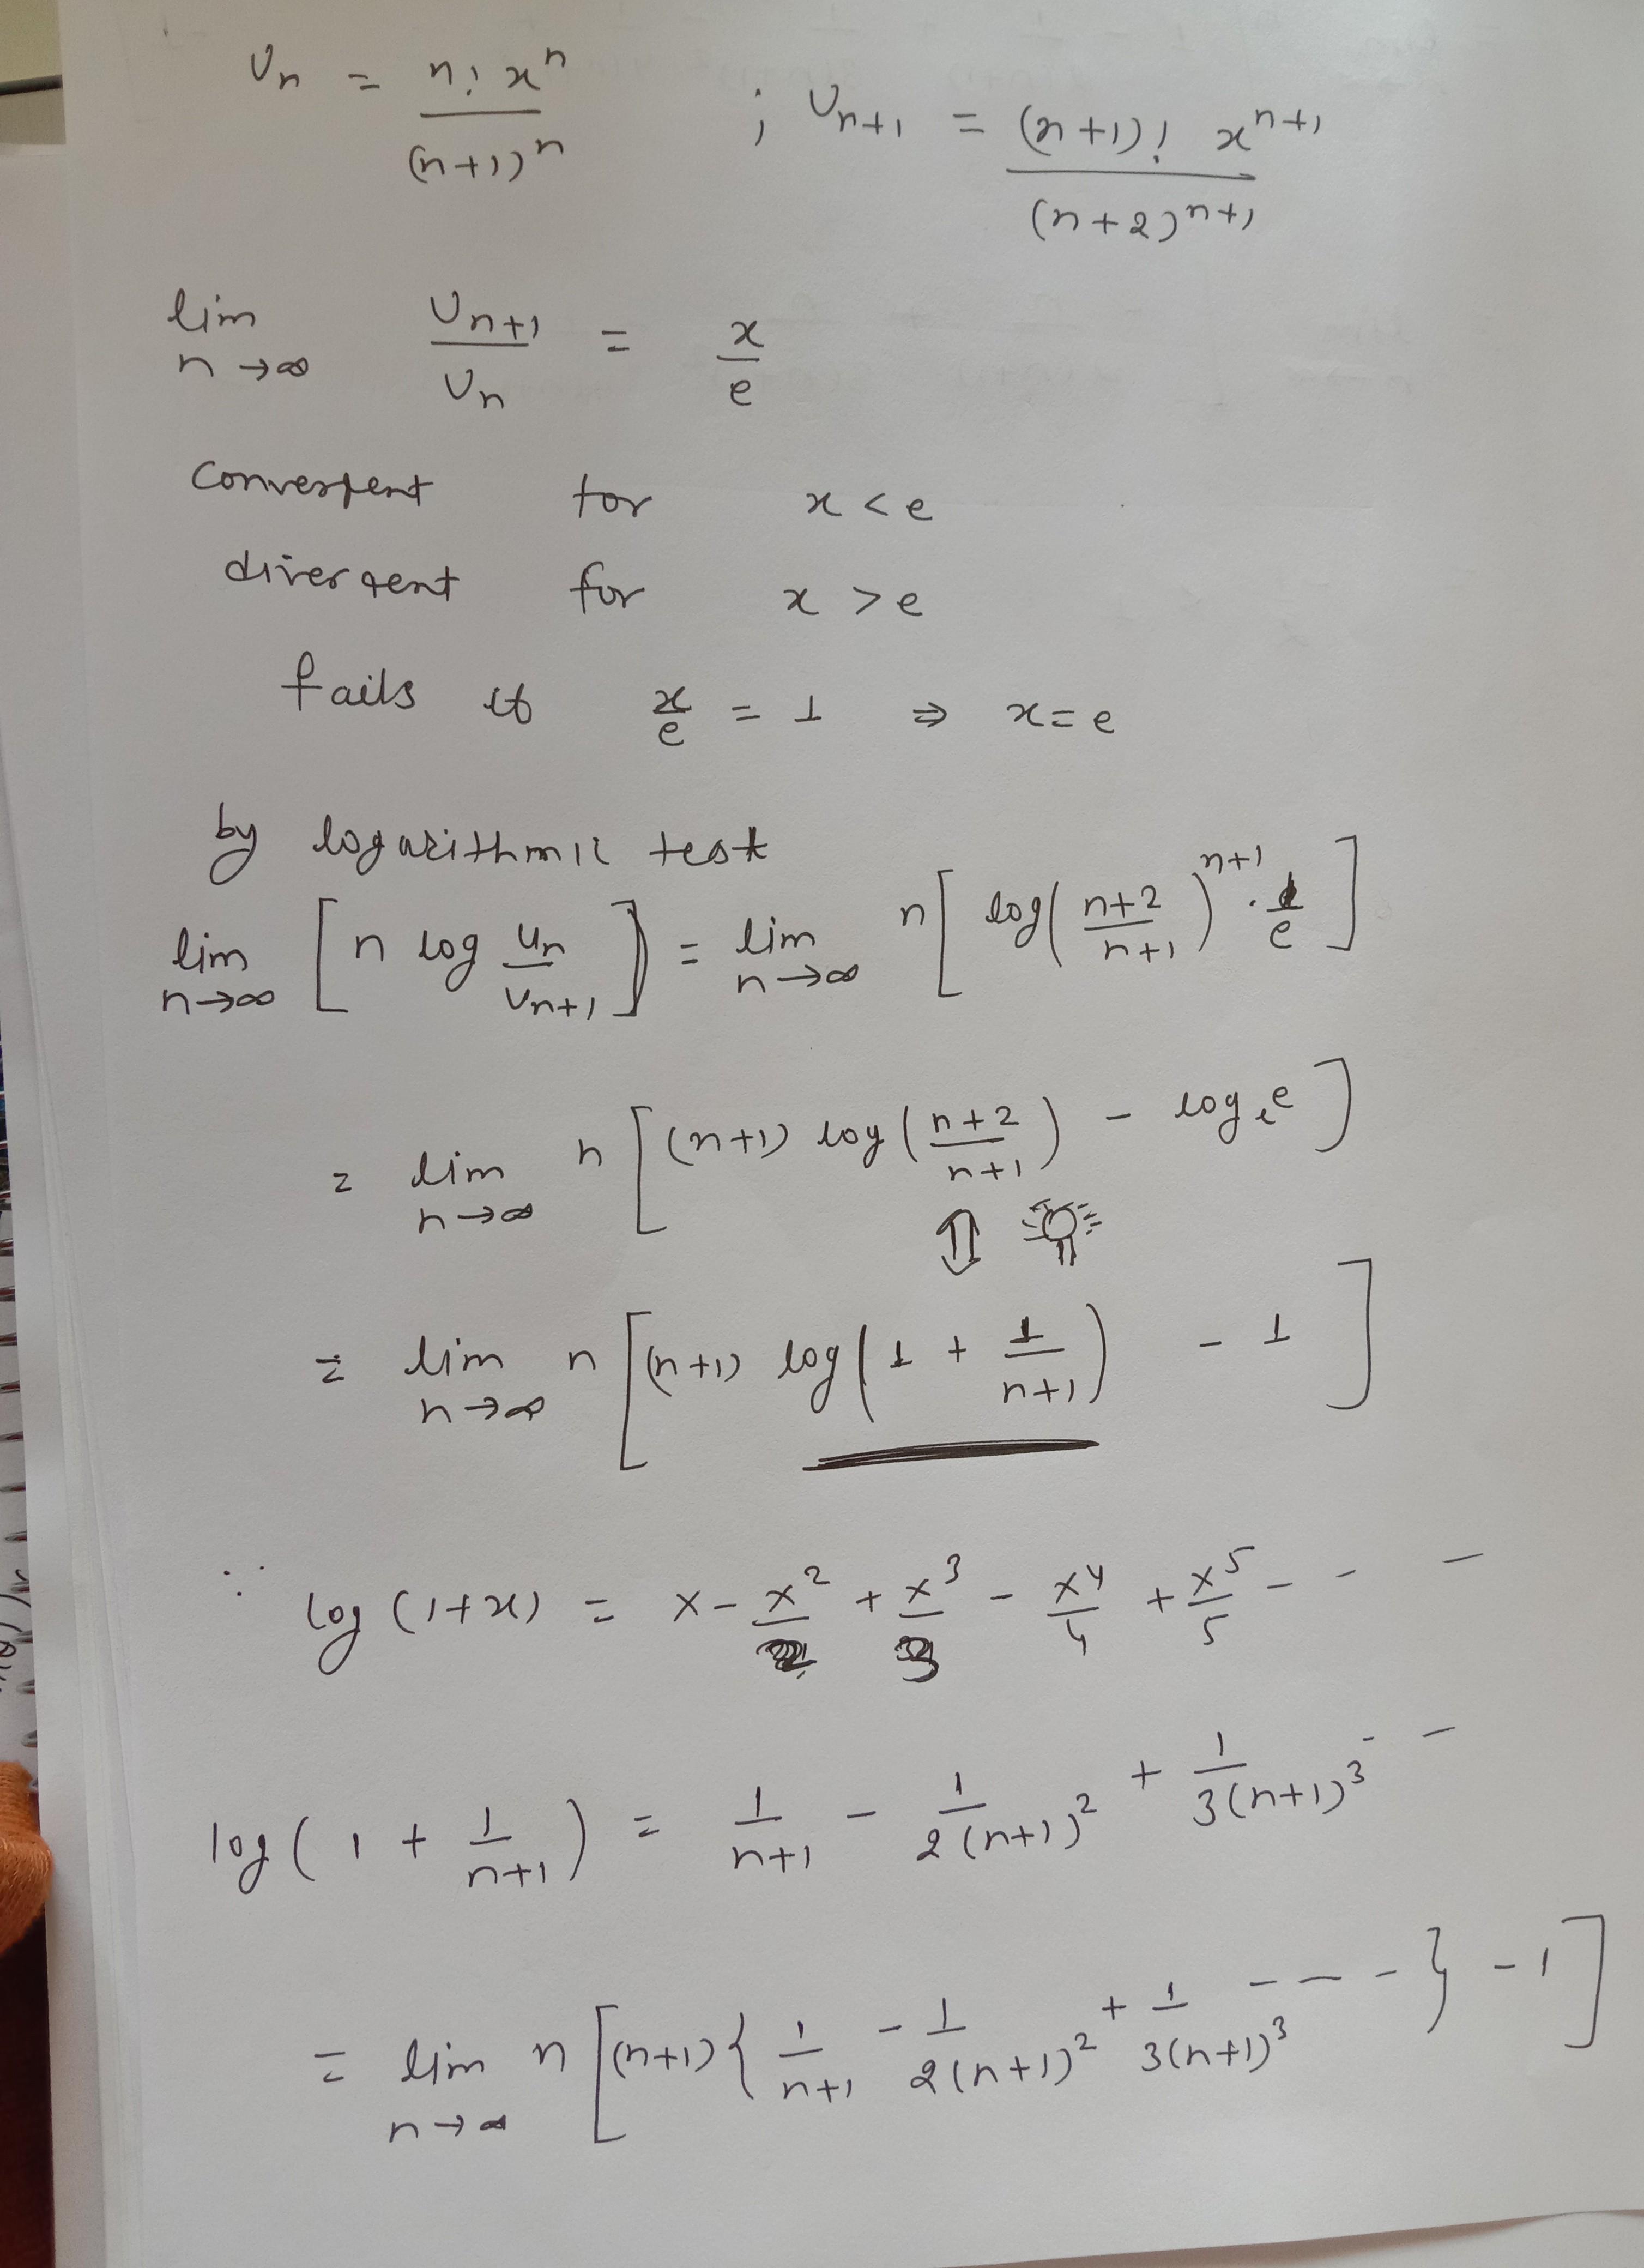 Un = n! xⁿ / (n+1)ⁿ ; Un+1 = (n+1)! xⁿ⁺¹ / (n+2)ⁿ⁺¹
lim n→∞ Un+1 / Un = x/e
Convergent for x < e
divergent for x > e
fails if x/e = 1 ⇒ x = e
by logarithmic test
lim n→∞ [n log Un / Un+1] = lim n→∞ n[log((n+2)/(n+1))ⁿ⁺¹ · 1/e]
= lim n→∞ n[(n+1) log((n+2)/(n+1)) − logₑe]
= lim n→∞ n[(n+1) log(1 + 1/(n+1)) − 1]
∵ log(1+x) = x − x²/2 + x³/3 − x⁴/4 + x⁵/5 - - -
log(1 + 1/(n+1)) = 1/(n+1) − 1/2(n+1)² + 1/3(n+1)³ - -
= lim n→∞ n[(n+1){1/(n+1) − 1/2(n+1)² + 1/3(n+1)³ - - - -} − 1]